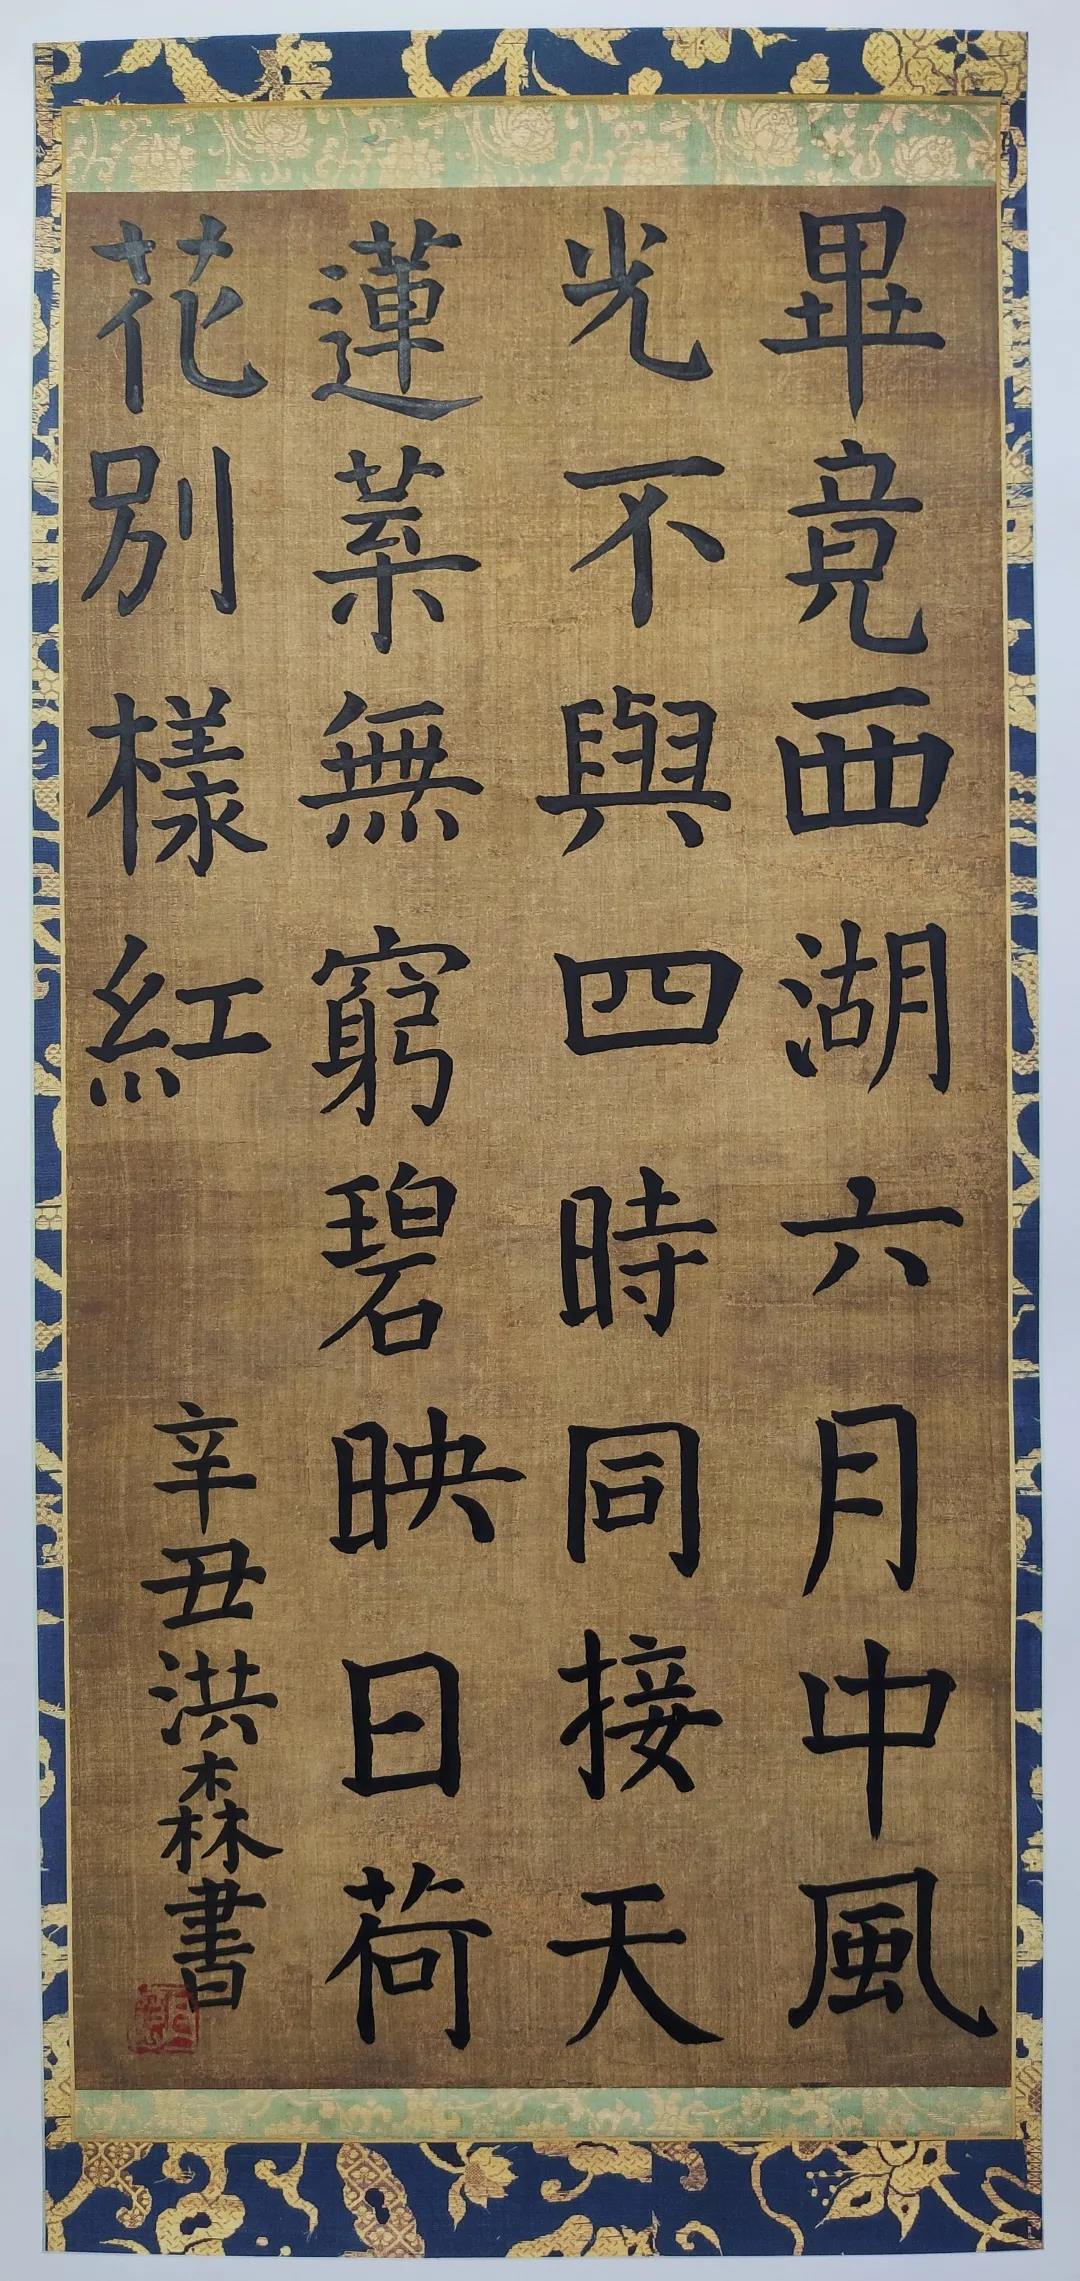 畢竟西湖六月中風
光不與四時同接天
蓮葉無窮碧映日荷
花別樣紅
辛丑洪森書